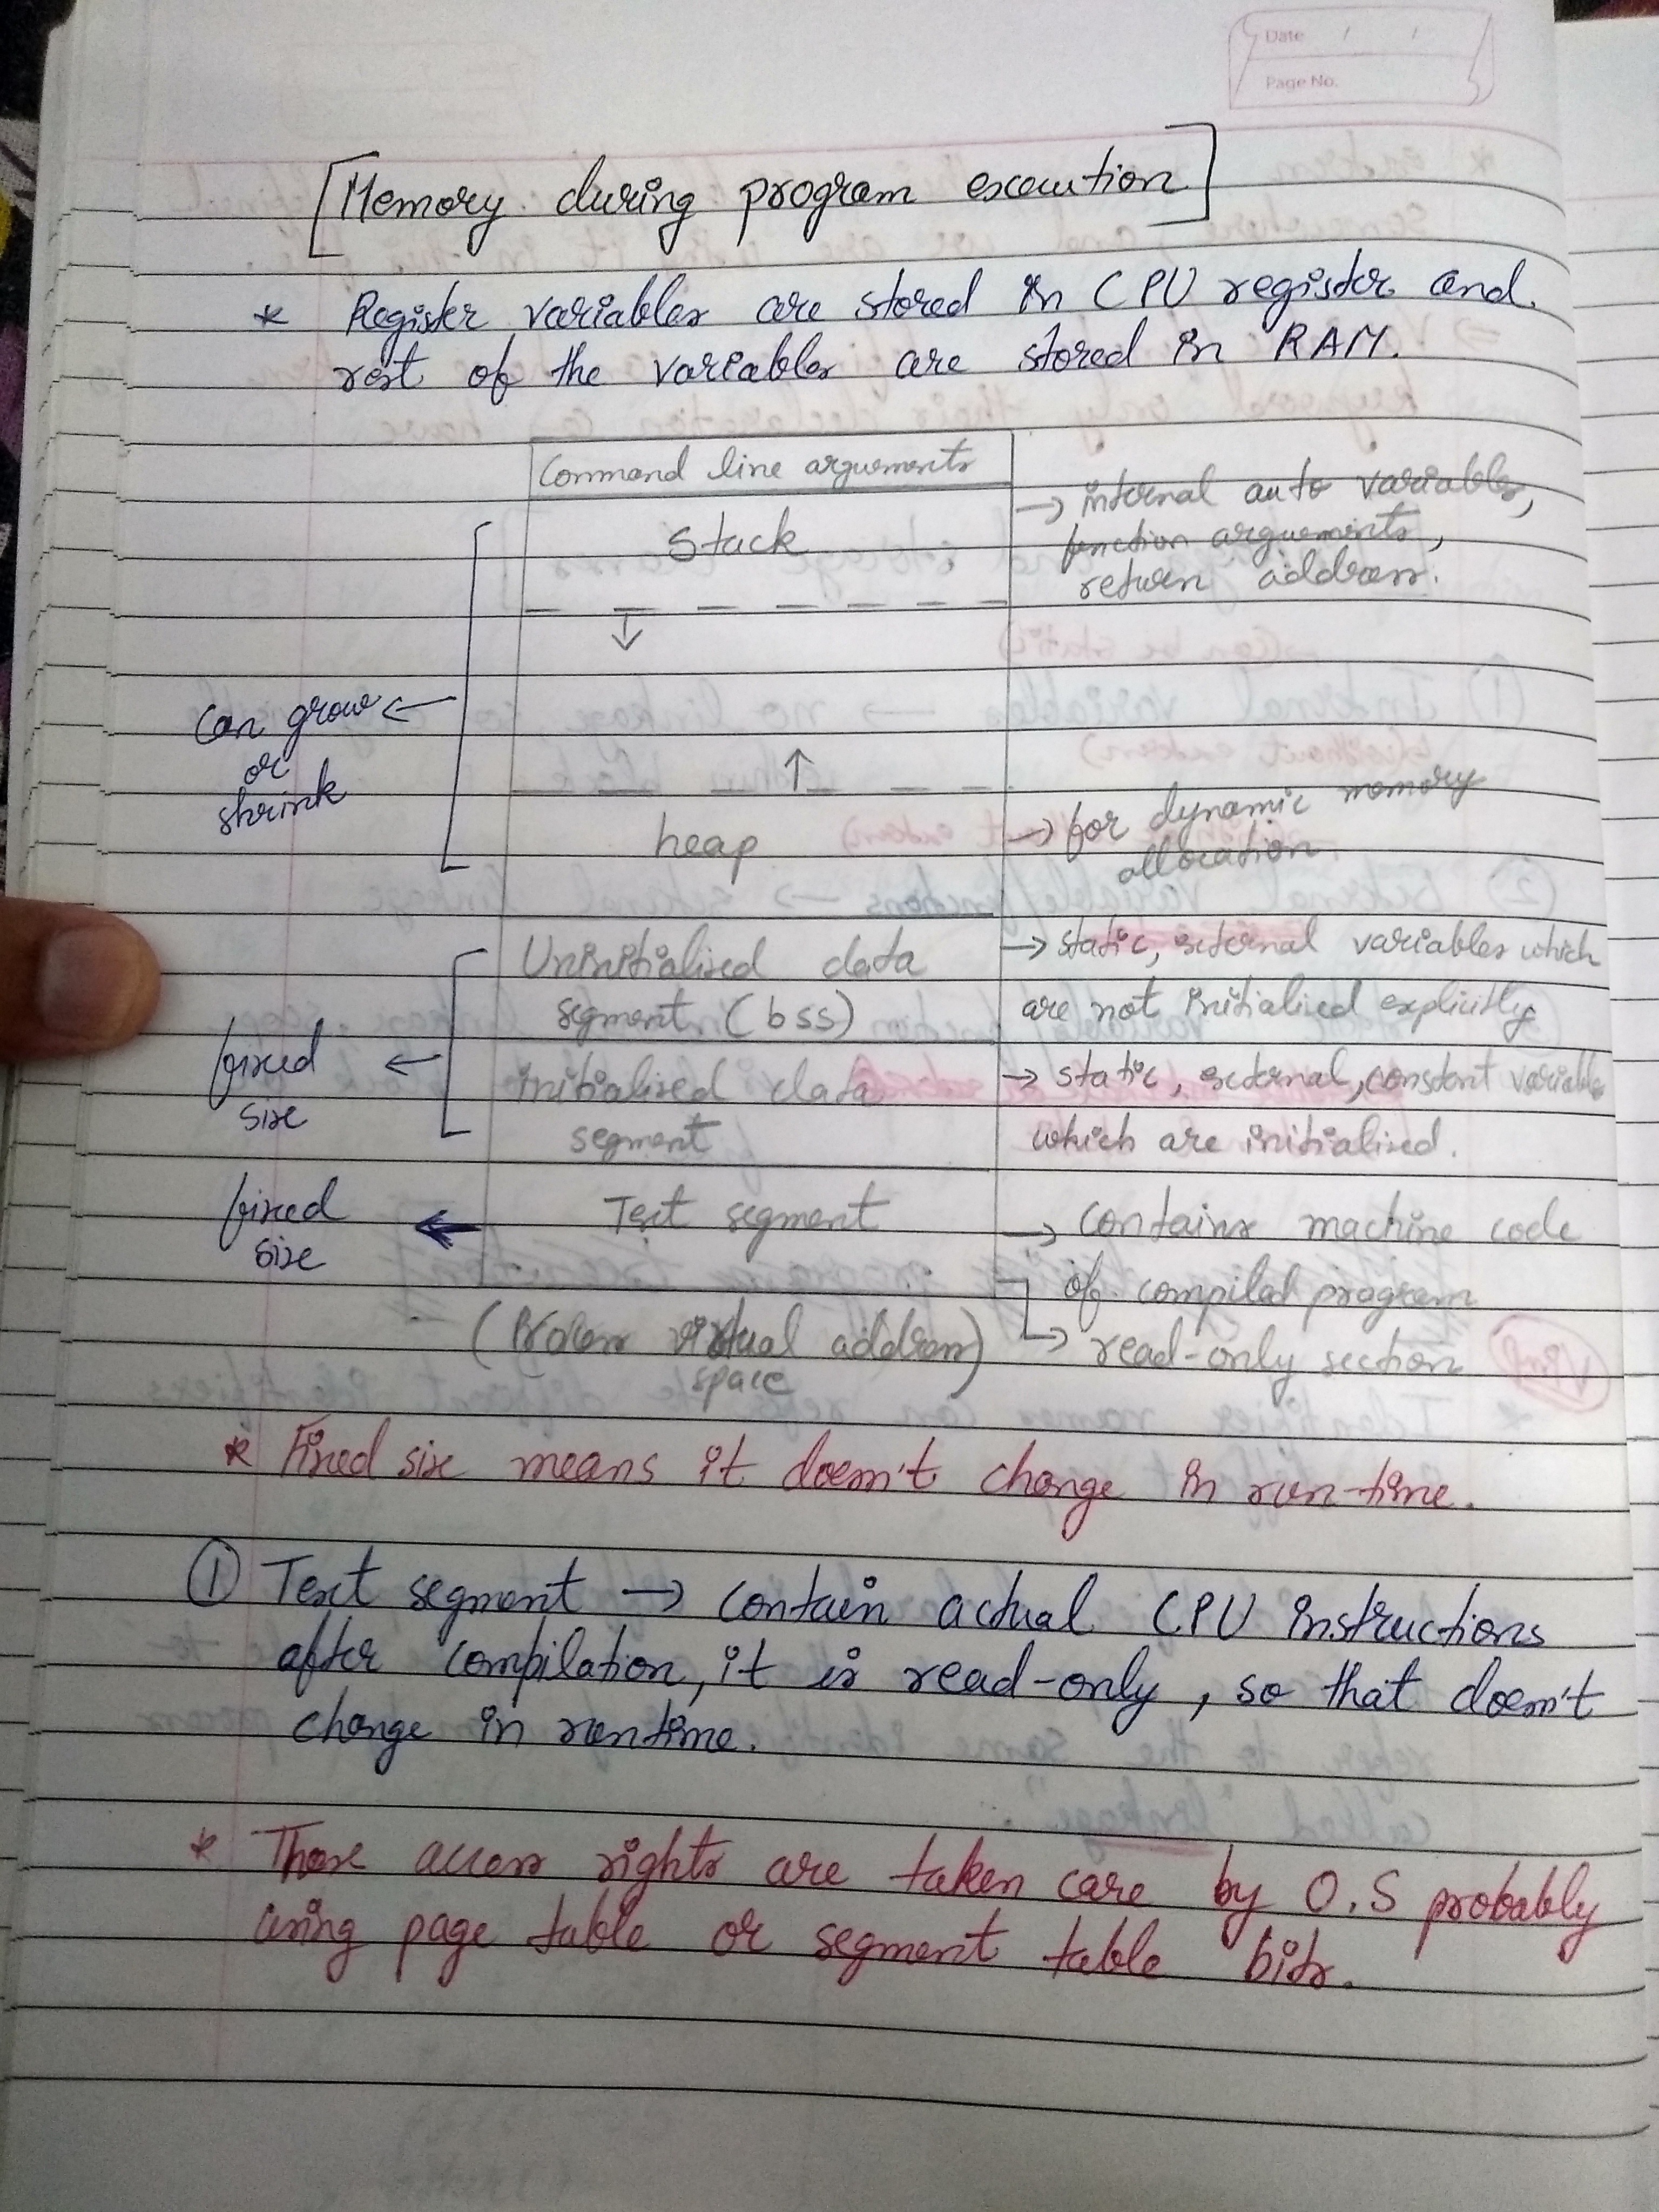 Date / /
Page No.
[Memory during program execution]
* Register variables are stored in CPU register and
rest of the variables are stored in RAM.
Command line arguements
Stack
→ internal auto variables,
function arguements,
return address.
↓
can grow ←
or
shrink
↑
heap
→ for dynamic memory
allocation
Uninitialised data
segment (bss)
→ static, external variables which
are not initialised explicitly
fixed ←
size
initialised data
segment
→ static, external, constant variables
which are initialised.
fixed ←
size
Text segment
→ contains machine code
of compiled program
→ read-only section
(Process virtual address)
space
* Fixed size means it doesn't change in run-time.
① Text segment → contain actual CPU instructions
after compilation, it is read-only, so that doesn't
change in runtime.
* These access rights are taken care by O.S probably
using page table or segment table bits.